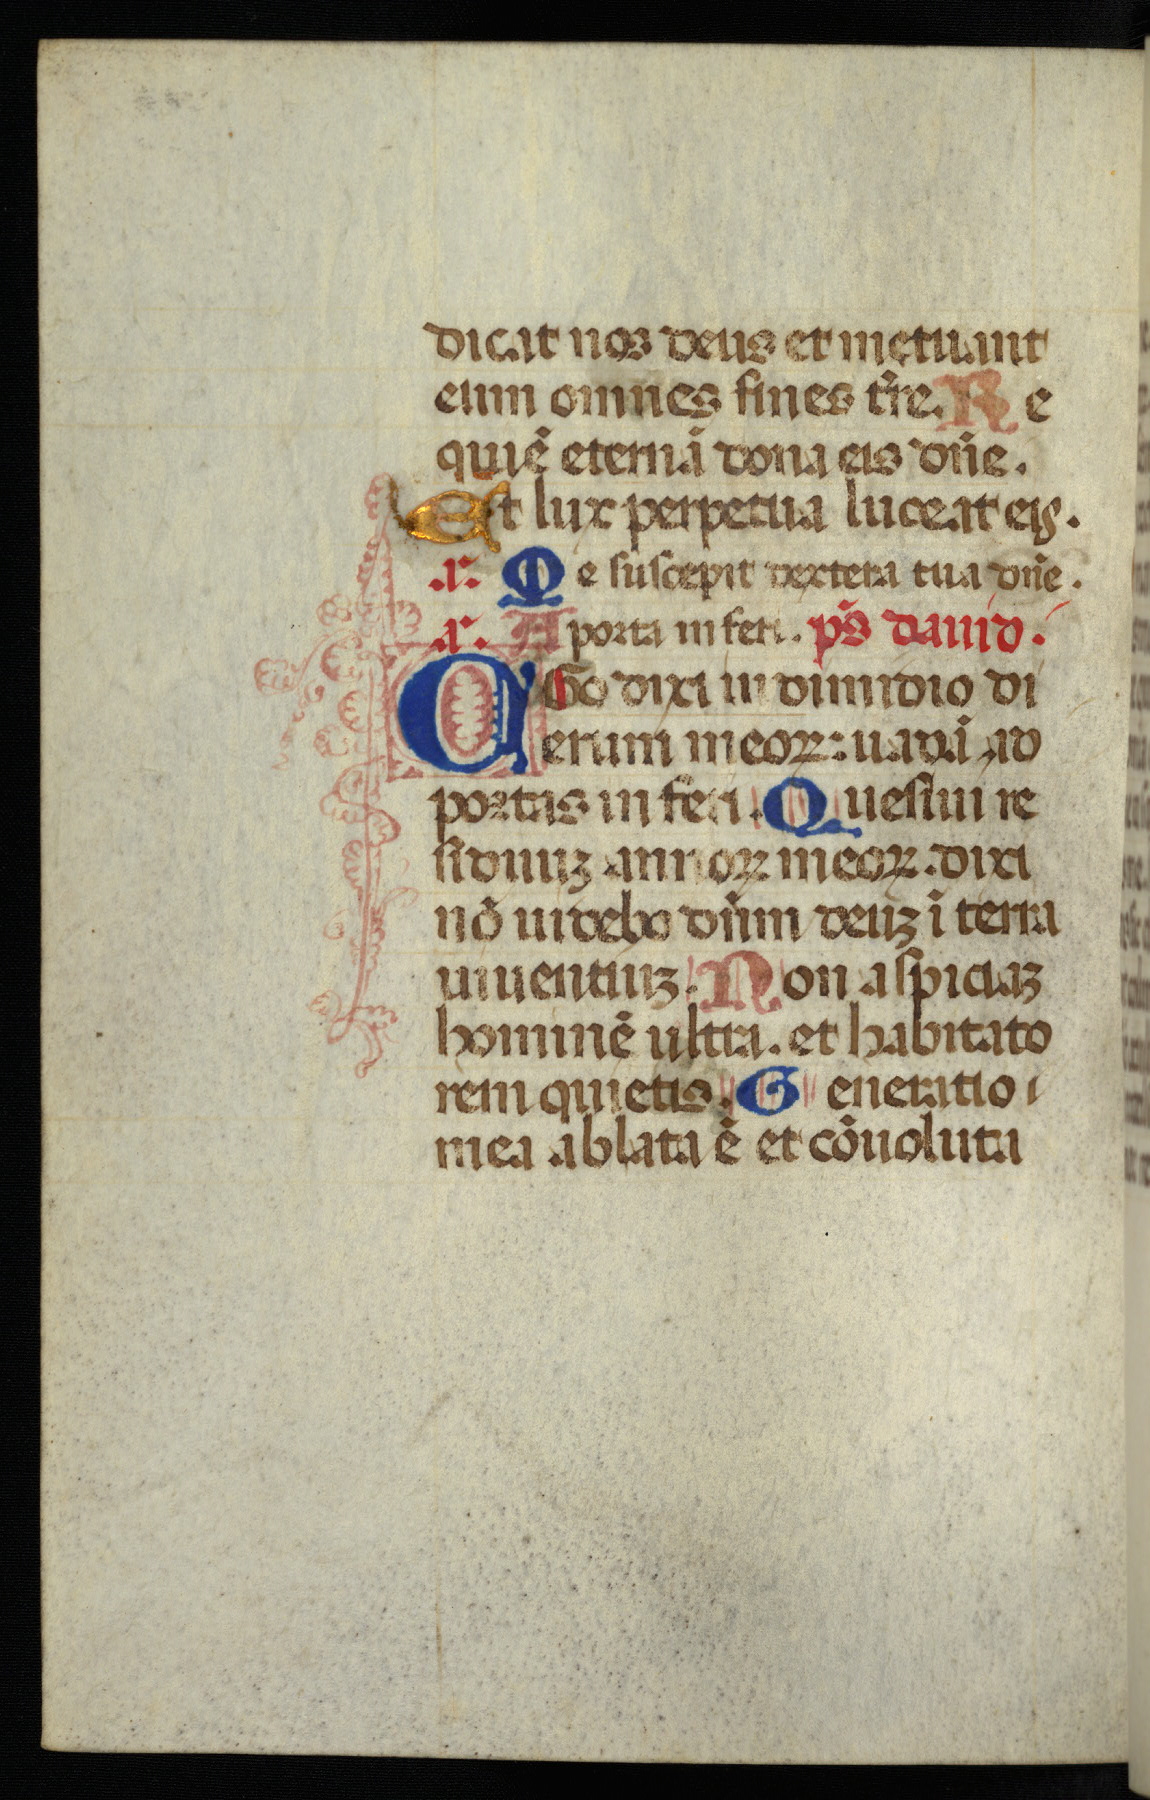 dicat nos deus et metuant
eum omnes fines tr̄e. Re
quiē eternā dona eis dn̄e.
Et lux perpetua luceat eis.
.a. Me suscepit dextera tua dn̄e.
.a. A porta inferi. ps̄ dauid.
EGo dixi in dimidio di
erum meoꝝ: uadā ad
portas inferi. Quesiui re
siduuꝫ annoꝝ meoꝝ. dixi
nō uidebo dn̄m deuꝫ ī terra
uiuentiuꝫ. Non aspiciaꝫ
hominē ultra. et habitato
rem quietis. Generatio
mea ablata ē et cōuoluta